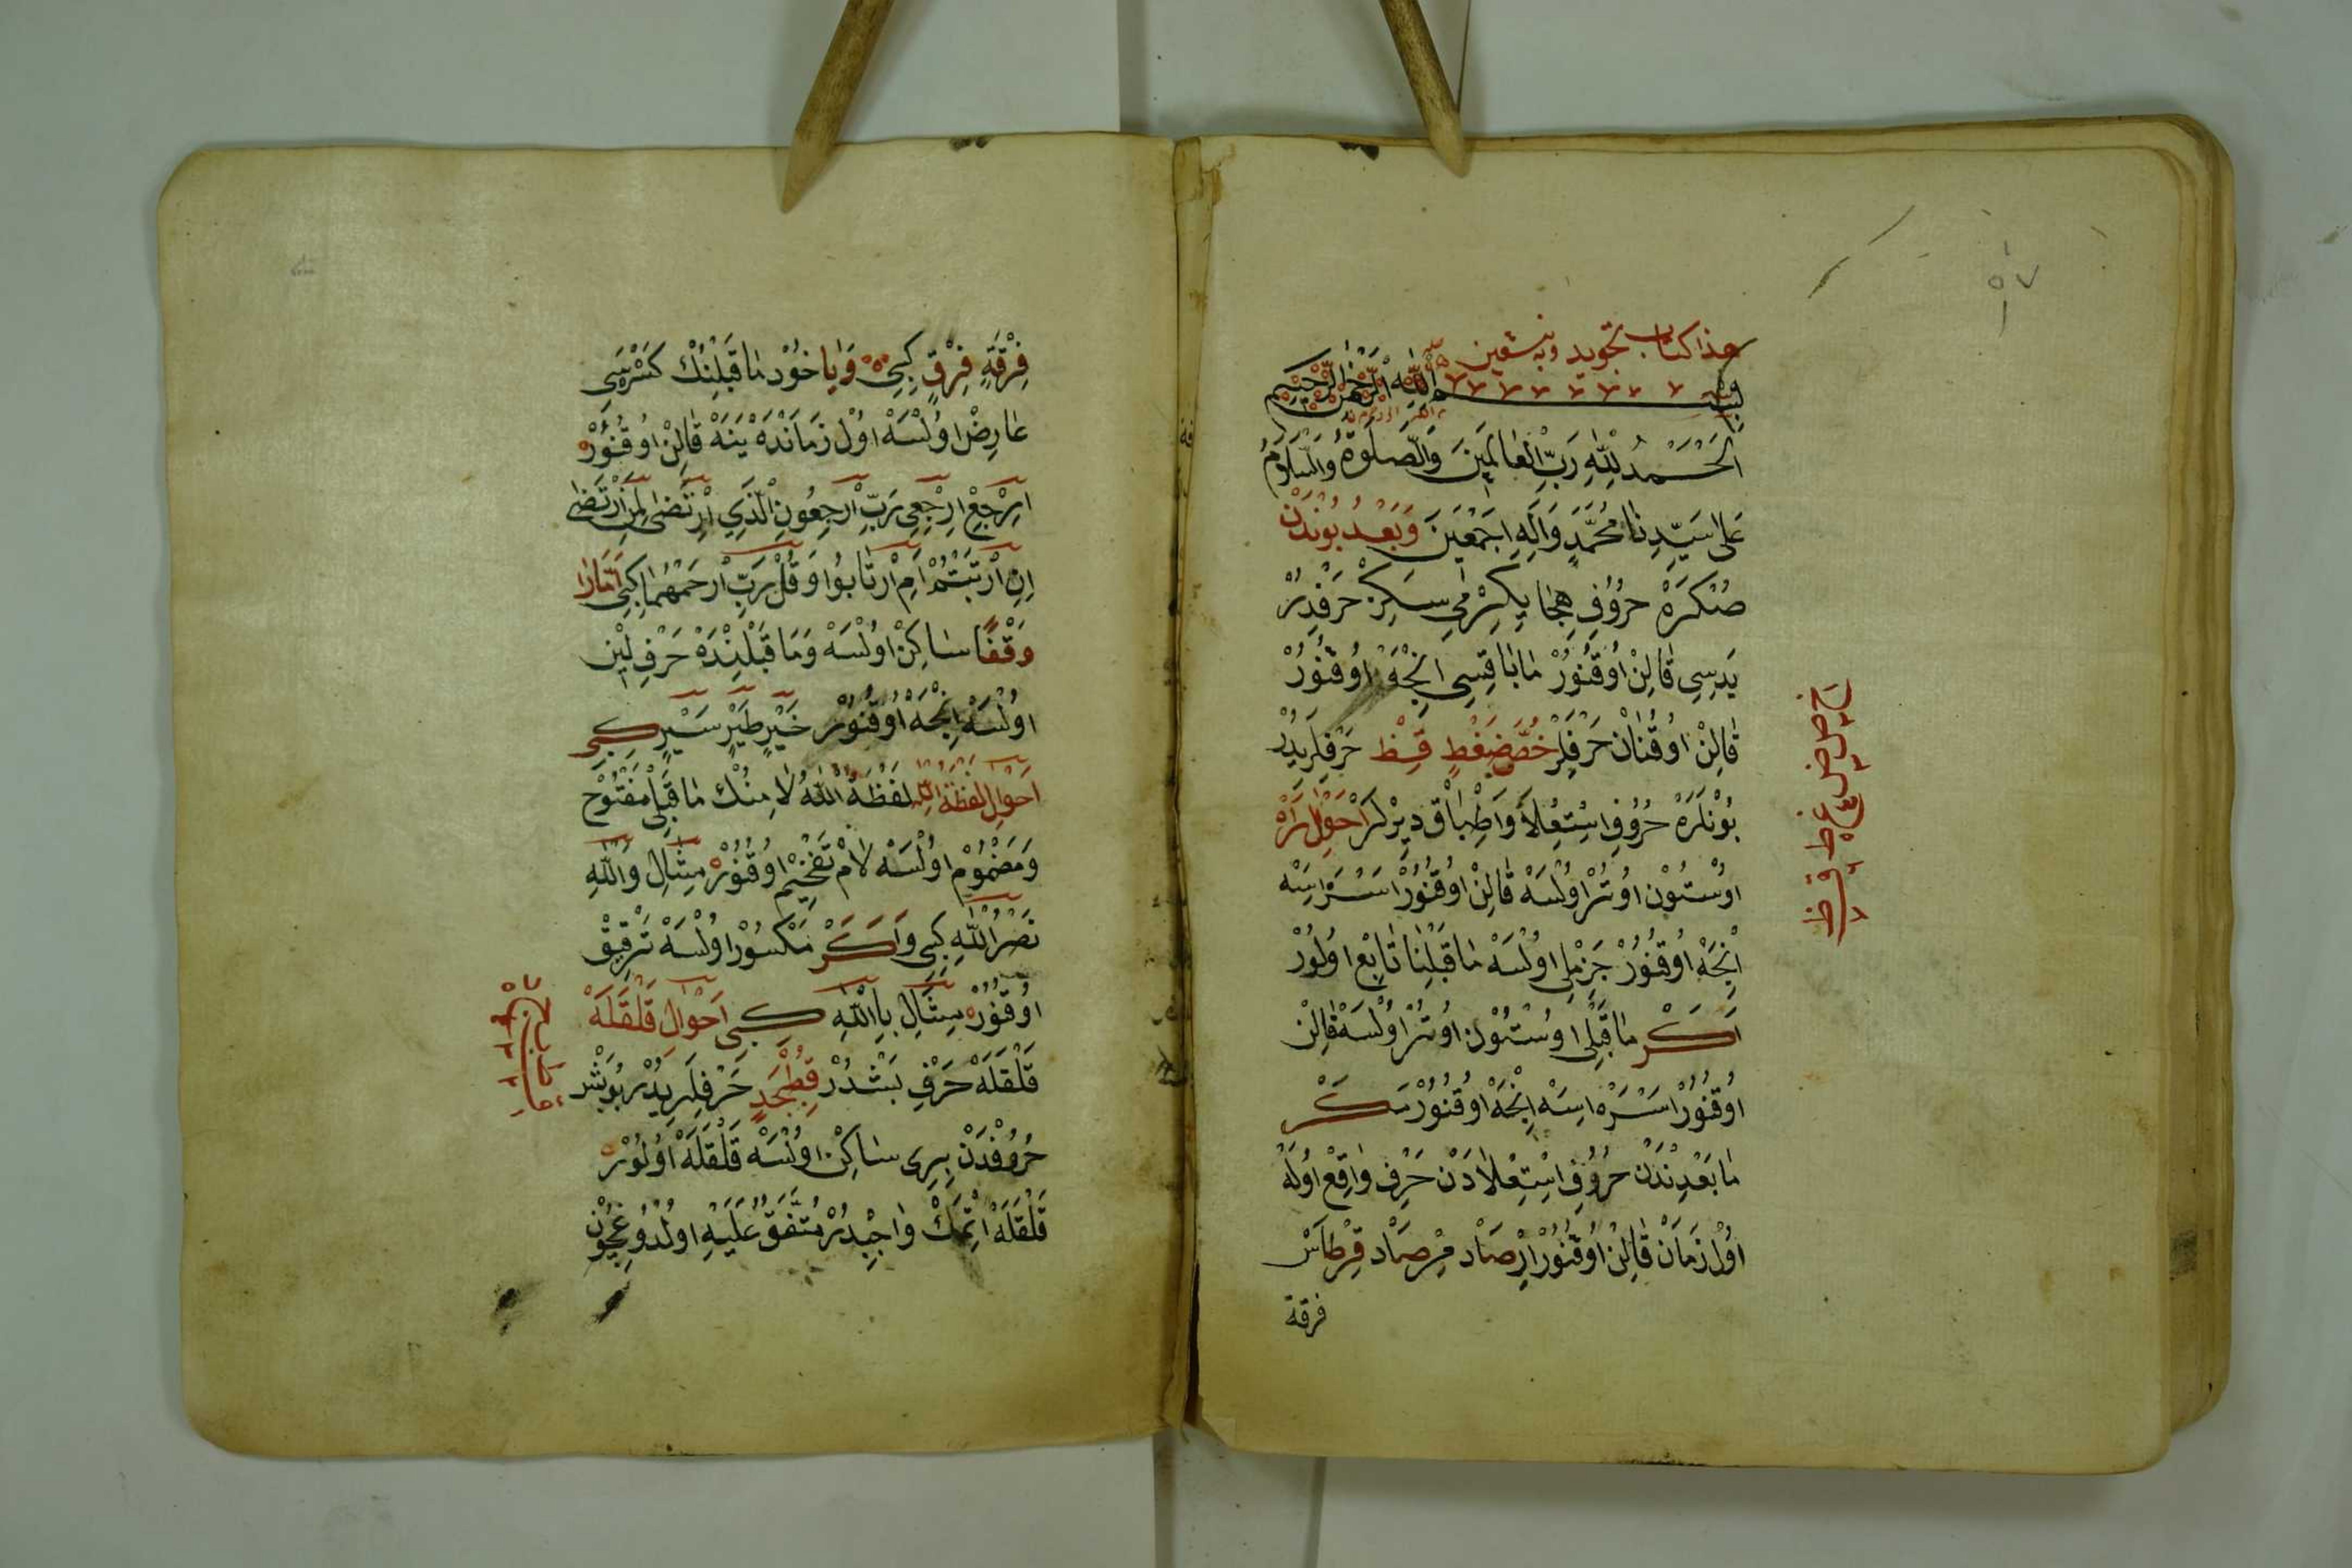 هذا كتاب تجويد وبه نستعين
بسم الله الرحمن الرحيم
اَلْحَمْدُ لِلّٰهِ رَبِّ الْعَالَمِينَ وَالصَّلٰوةُ وَالسَّلَامُ
عَلٰى سَيِّدِنَا مُحَمَّدٍ وَاٰلِهِ اَجْمَعِينَ وَبَعْدُ بُوندَنْ
صُنْكَرَهْ حُرُوفِ هِجَا يِكِرْمِي سَكِزْ حَرْفْدِرْ
يَدِسِي قَالِنْ اُوقُنُورْ مَابَاقِسِي اِنْجَهْ اُوقُنُورْ
قَالِنْ اوُقُنَانْ حَرْفِلِرْ خُصَّ ضَغْطٍ قِظْ حَرْفِلَرِيدُرْ
بُونْلَرَهْ حُرُوفِ اِسْتِعْلَا وَاِطْبَاقْ دِيرْلَرْ اَحْوَالِ رَا
اوُسْتُونْ اوُتُرْ اوُلْسَهْ قَالِنْ اوُقُنُورْ اَسْرَه اِسَهْ
اِنْجَهْ اوُقُنُورْ جَزِمْلِي اوُلْسَهْ مَا قَبْلِنَا تَابِعْ اوُلُورْ
اَكَرْ مَا قَبْلِي اوُسْتُونْ اوُتُرْ اوُلْسَهْ قَالِنْ
اوُقُنُورْ اَسْرَه اِسَهْ اِنْجَهْ اوُقُنُورْ مَكَرْ
مَا بَعْدِنْدَنْ حُرُوفِ اِسْتِعْلَادَنْ حَرْفِ وَاقِعْ اوُلَهْ
اوُلْ زَمَانْ قَالِنْ اوُقُنُورْ اِرْصَادْ مِرْصَادْ قِرْطَاسْ
فرقة
خ ص ض غ ط ق ظ
فِرْقَةٍ فِرْقٍ كِبِي وَيَا خُودْ مَا قَبْلِنُكْ كَسْرَسِي
عَارِضْ اوُلْسَهْ اوُلْ زَمَانْدَهْ يَنَهْ قَالِنْ اوُقُنُورْ
اِرْجِعْ اِرْجِعِي رَبِّ ارْجِعُونِ الَّذِي ارْتَضٰى لِمَنِ ارْتَضٰى
اِنِ ارْتَبْتُمْ اَمِ ارْتَابُوا وَقُلْ رَبِّ ارْحَمْهُمَا كِبِي اَمَّا رَا
وَقْفًا سَاكِنْ اوُلْسَهْ وَمَا قَبْلِنْدَهْ حَرْفِ لِينْ
اوُلْسَهْ اِنْجَهْ اوُقُنُورْ خَيْرٍ طَيْرٍ سَيْرٍ كِبِي
اَحْوَالِ لَفْظَةُ اللّٰه لَفْظَةُ اللّٰهُ لَا مِنُكْ مَا قَبْلِي مَفْتُوحْ
وَمَضْمُومْ اوُلْسَهْ لَامْ تَفْخِيمْ اوُقُنُورْ مِثَالِ وَاللّٰهِ
نَصْرُ اللّٰهِ كِبِي وَاَكَرْ مَكْسُورْ اوُلْسَهْ تَرْقِيقْ
اوُقُنُورْ مِثَالِ بِاللّٰهِ كِبِي اَحْوَالِ قَلْقَلَهْ
قَلْقَلَهْ حَرْفِ بَشْدُرْ قُطْبُجَدٍ حَرْفِلَرِيدُرْ بُو بَشْ
حُرُوفْدَنْ بِرِي سَاكِنْ اوُلْسَهْ قَلْقَلَهْ اوُلُورْ
قَلْقَلَهْ اِتْمَكْ وَاجِبْدُرْ مُتَّفَقٌ عَلَيْهِ اوُلْدُوغِيجُونْ
ق ط ب ج د